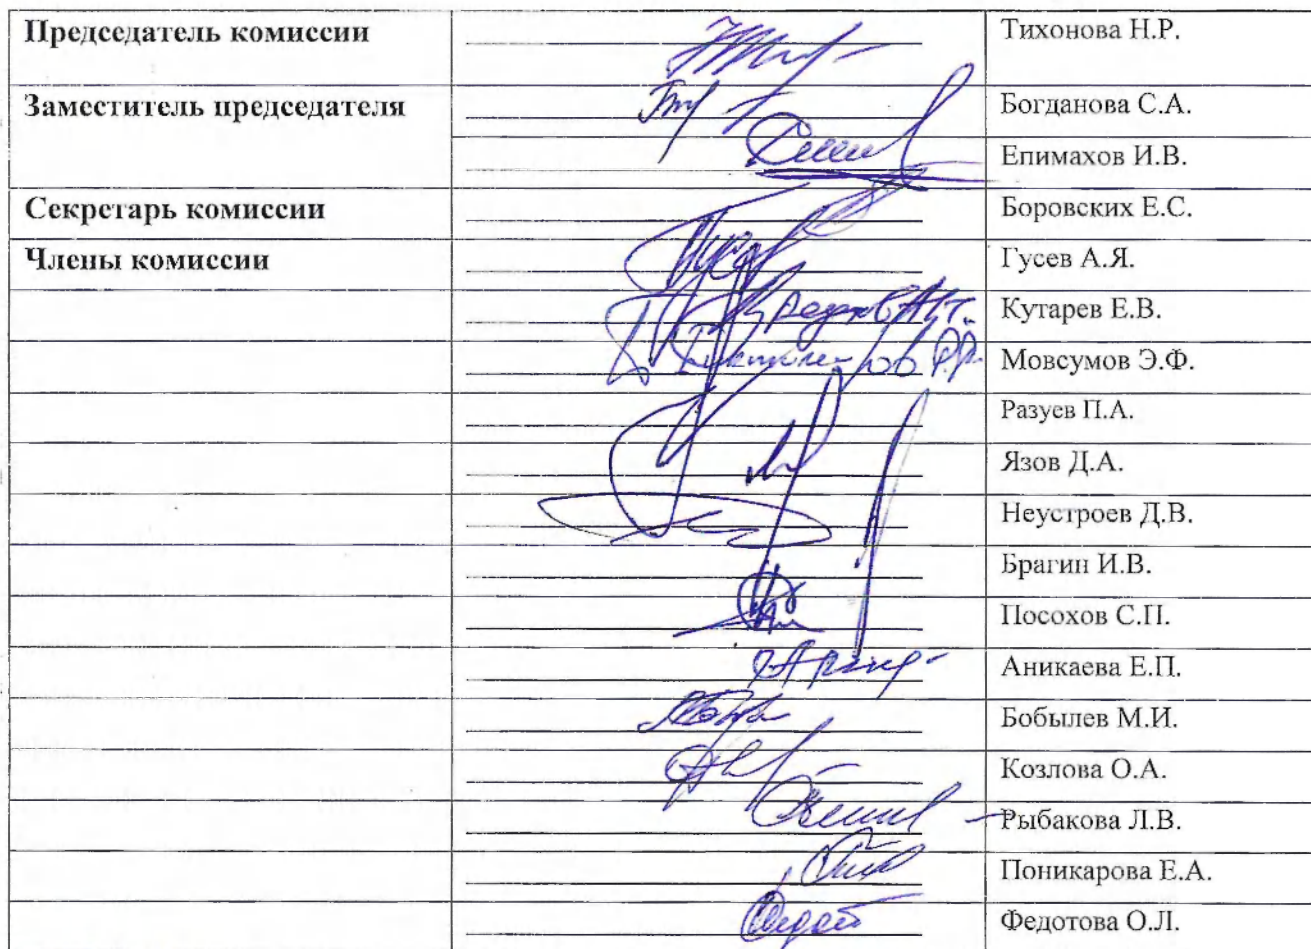 Председатель комиссии Тихонова Н.Р.
Заместитель председателя Богданова С.А.
Епимахов И.В.
Секретарь комиссии Боровских Е.С.
Члены комиссии Гусев А.Я.
Кутарев Е.В.
Мовсумов Э.Ф.
Разуев П.А.
Язов Д.А.
Неустроев Д.В.
Брагин И.В.
Посохов С.П.
Аникаева Е.П.
Бобылев М.И.
Козлова О.А.
Рыбакова Л.В.
Поникарова Е.А.
Федотова О.Л.